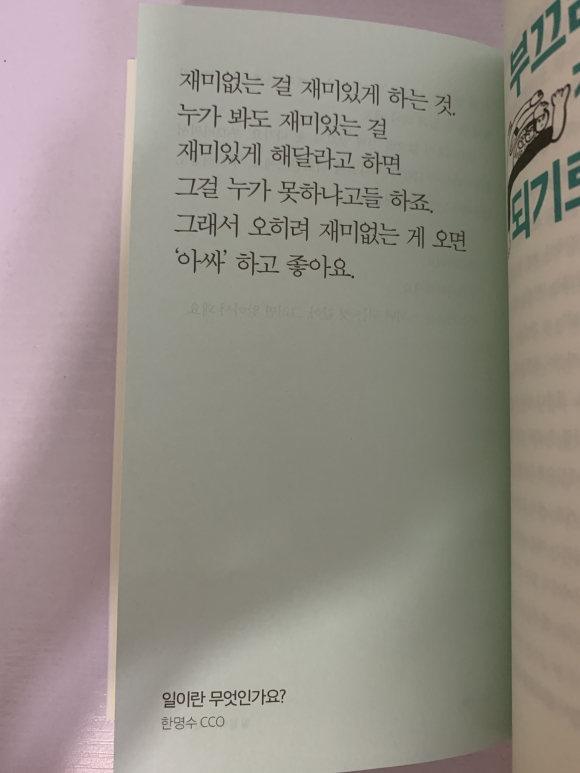 재미없는 걸 재미있게 하는 것.
누가 봐도 재미있는 걸
재미있게 해달라고 하면
그걸 누가 못하냐고들 하죠.
그래서 오히려 재미없는 게 오면
‘아싸’ 하고 좋아요.
일이란 무엇인가요?
한명수 CCO
되기로